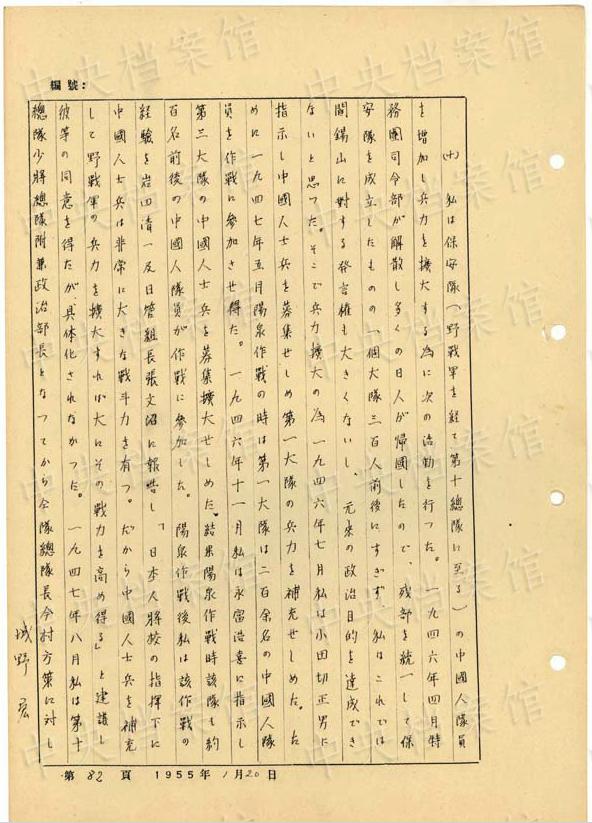 編號:
(十) 私は保安隊(野戦軍を経て第十總隊に至る)の中國人隊員
を增加し兵力を擴大する為に次の活動を行つた。一九四六年四月特
務團司令部が解散し多くの日人が帰國したので、残部を統一して保
安隊を成立したものの一個大隊三百人前後にすぎず、私はこれでは
閻錫山に對する発言権も大きくないし、元来の政治目的を達成でき
ないと思つた。そこで兵力擴大の為一九四六年七月私は小田切正男に
指示し中國人士兵を募集せしめ第一大隊の兵力を補充せしめた。た
めに一九四七年五月陽泉作戰の時は第一大隊は二百余名の中國人隊
員を作戰に參加させ得た。一九四六年十一月私は永富浩喜に指示し
第三大隊の中國人士兵を募集擴大せしめた。結果陽泉作戰時該隊も約
百名前後の中國人隊員が作戰に參加した。陽泉作戰後私は該作戰の
経驗を岩田清一及日管組長張文紹に報告し「日本人將校の指揮下に
中國人士兵は非常に大きな戰斗力を有つ。だから中國人士兵を補充
して野戰軍の兵力を擴大すれば大にその戰力を高め得る」と建議し
彼等の同意を得たが、具体化されなかつた。一九四七年八月私は第十
總隊少將總隊附兼政治部長となつてから全隊總隊長今村方策に対し
城野宏
第 82 頁 1955年 1月20日
中央档案馆